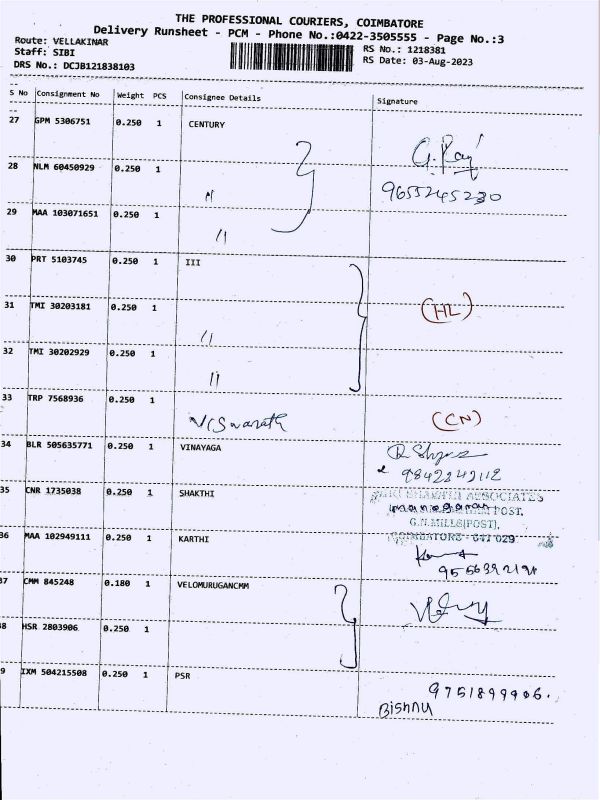 THE PROFESSIONAL COURIERS, COIMBATORE
Delivery Runsheet - PCM - Phone No.:0422-3505555 - Page No.:3
Route: VELLAKINAR
Staff: SIBI
DRS No.: DCJB121838103
RS No.: 1218381
RS Date: 03-Aug-2023
S No Consignment No Weight PCS Consignee Details Signature
27 GPM 5306751 0.250 1 CENTURY
G. Raj
28 NLM 60450929 0.250 1 "
9655245230
29 MAA 103071651 0.250 1 "
30 PRT 5103745 0.250 1 III
31 TMI 30203181 0.250 1 " (HL)
32 TMI 30202929 0.250 1 "
33 TRP 7568936 0.250 1 Viswanath (CN)
34 BLR 505635771 0.250 1 VINAYAGA
9842242112
35 CNR 1735038 0.250 1 SHAKTHI
ASSOCIATES
manogaran POST,
G.N.MILLS(POST),
COIMBATORE - 641 029
36 MAA 102949111 0.250 1 KARTHI
37 CMM 845248 0.180 1 VELOMURUGANCMM
38 HSR 2803906 0.250 1
39 IXM 504215508 0.250 1 PSR
9751899906.
Bishnu